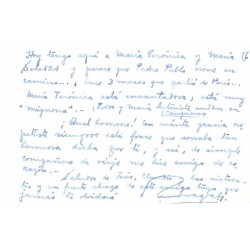 Hoy tengo aquí a María Verónica y María (6
Soledad y parece que Pedro Pablo viene en
camino... ¡hace 3 meses que partió de París...
María Verónica está encantadora, está muy
"mignona". (Pedro y María Antonieta andan en
campamento)
¡Qué hombre! con cuánta gracia me
repitió siempre esta frase que sonaba tan
hermosa dicha por ti, y así, de simple
compañero de viaje me hice amigo de co-
razón.
Saludos de Inés, y las nietas-
tú y un fuerte abrazo de este amigo tuyo que
jamás te olvidará